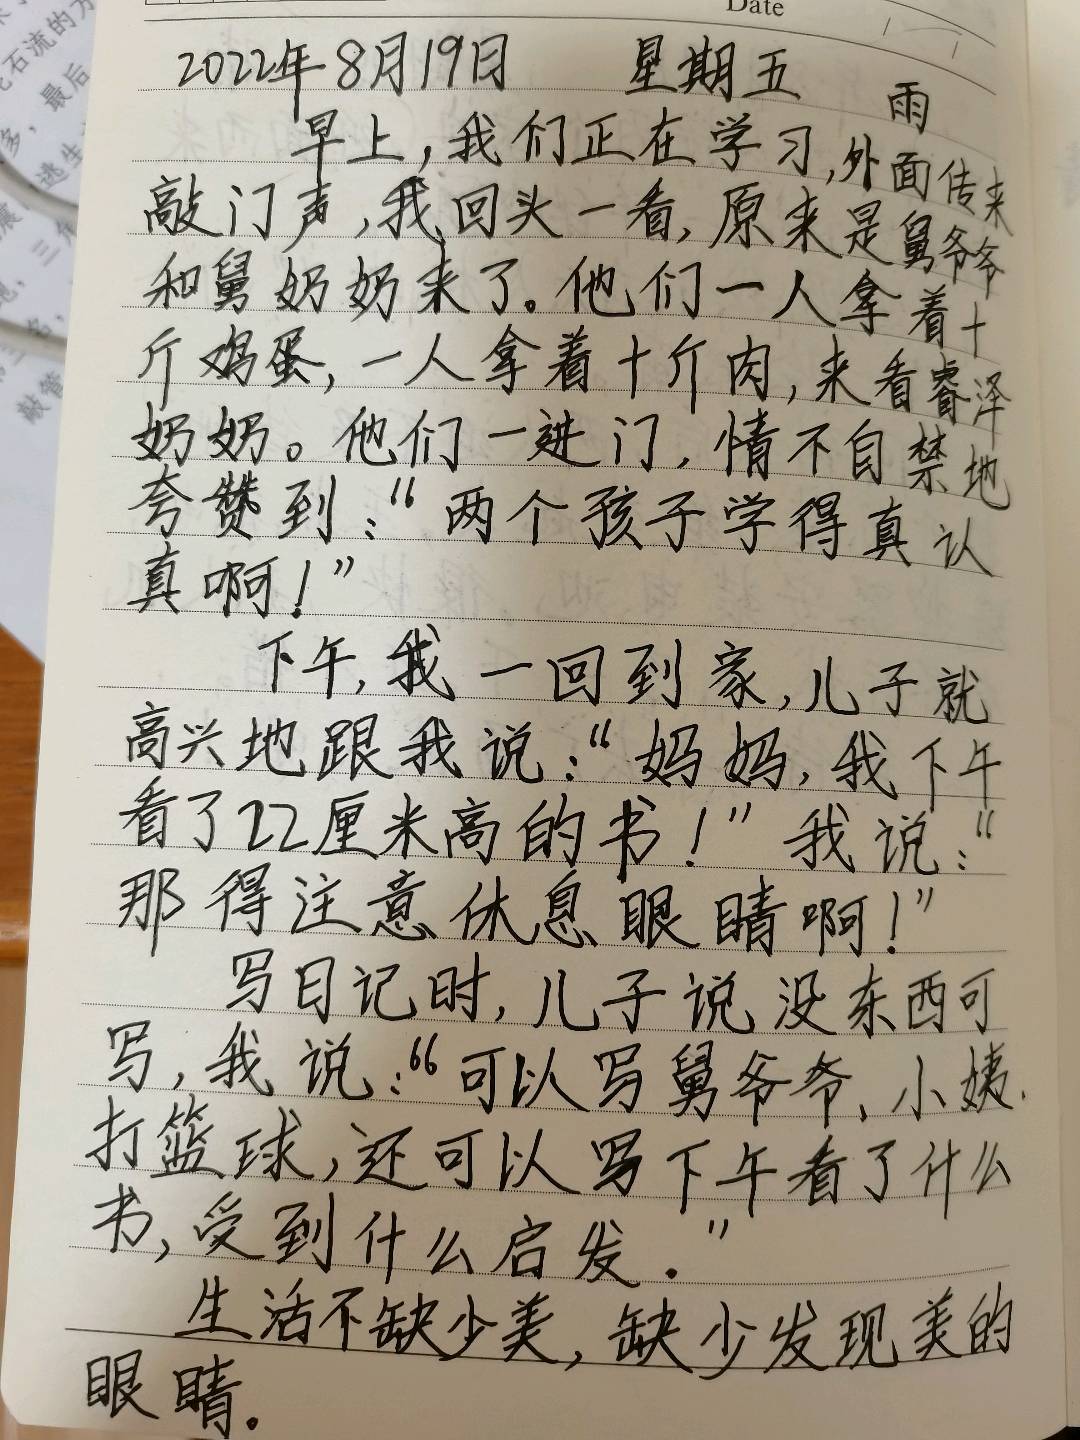 Date
2022年8月19日 星期五 雨
早上,我们正在学习,外面传来
敲门声,我回头一看,原来是舅爷爷
和舅奶奶来了。他们一人拿着十
斤鸡蛋,一人拿着十斤肉,来看睿泽
奶奶。他们一进门,情不自禁地
夸赞到:“两个孩子学得真认
真啊!”
下午,我一回到家,儿子就
高兴地跟我说:“妈妈,我下午
看了22厘米高的书!”我说:“
那得注意休息眼睛啊!”
写日记时,儿子说没东西可
写,我说:“可以写舅爷爷、小姨、
打篮球,还可以写下午看了什么
书,受到什么启发.”
生活不缺少美,缺少发现美的
眼睛。